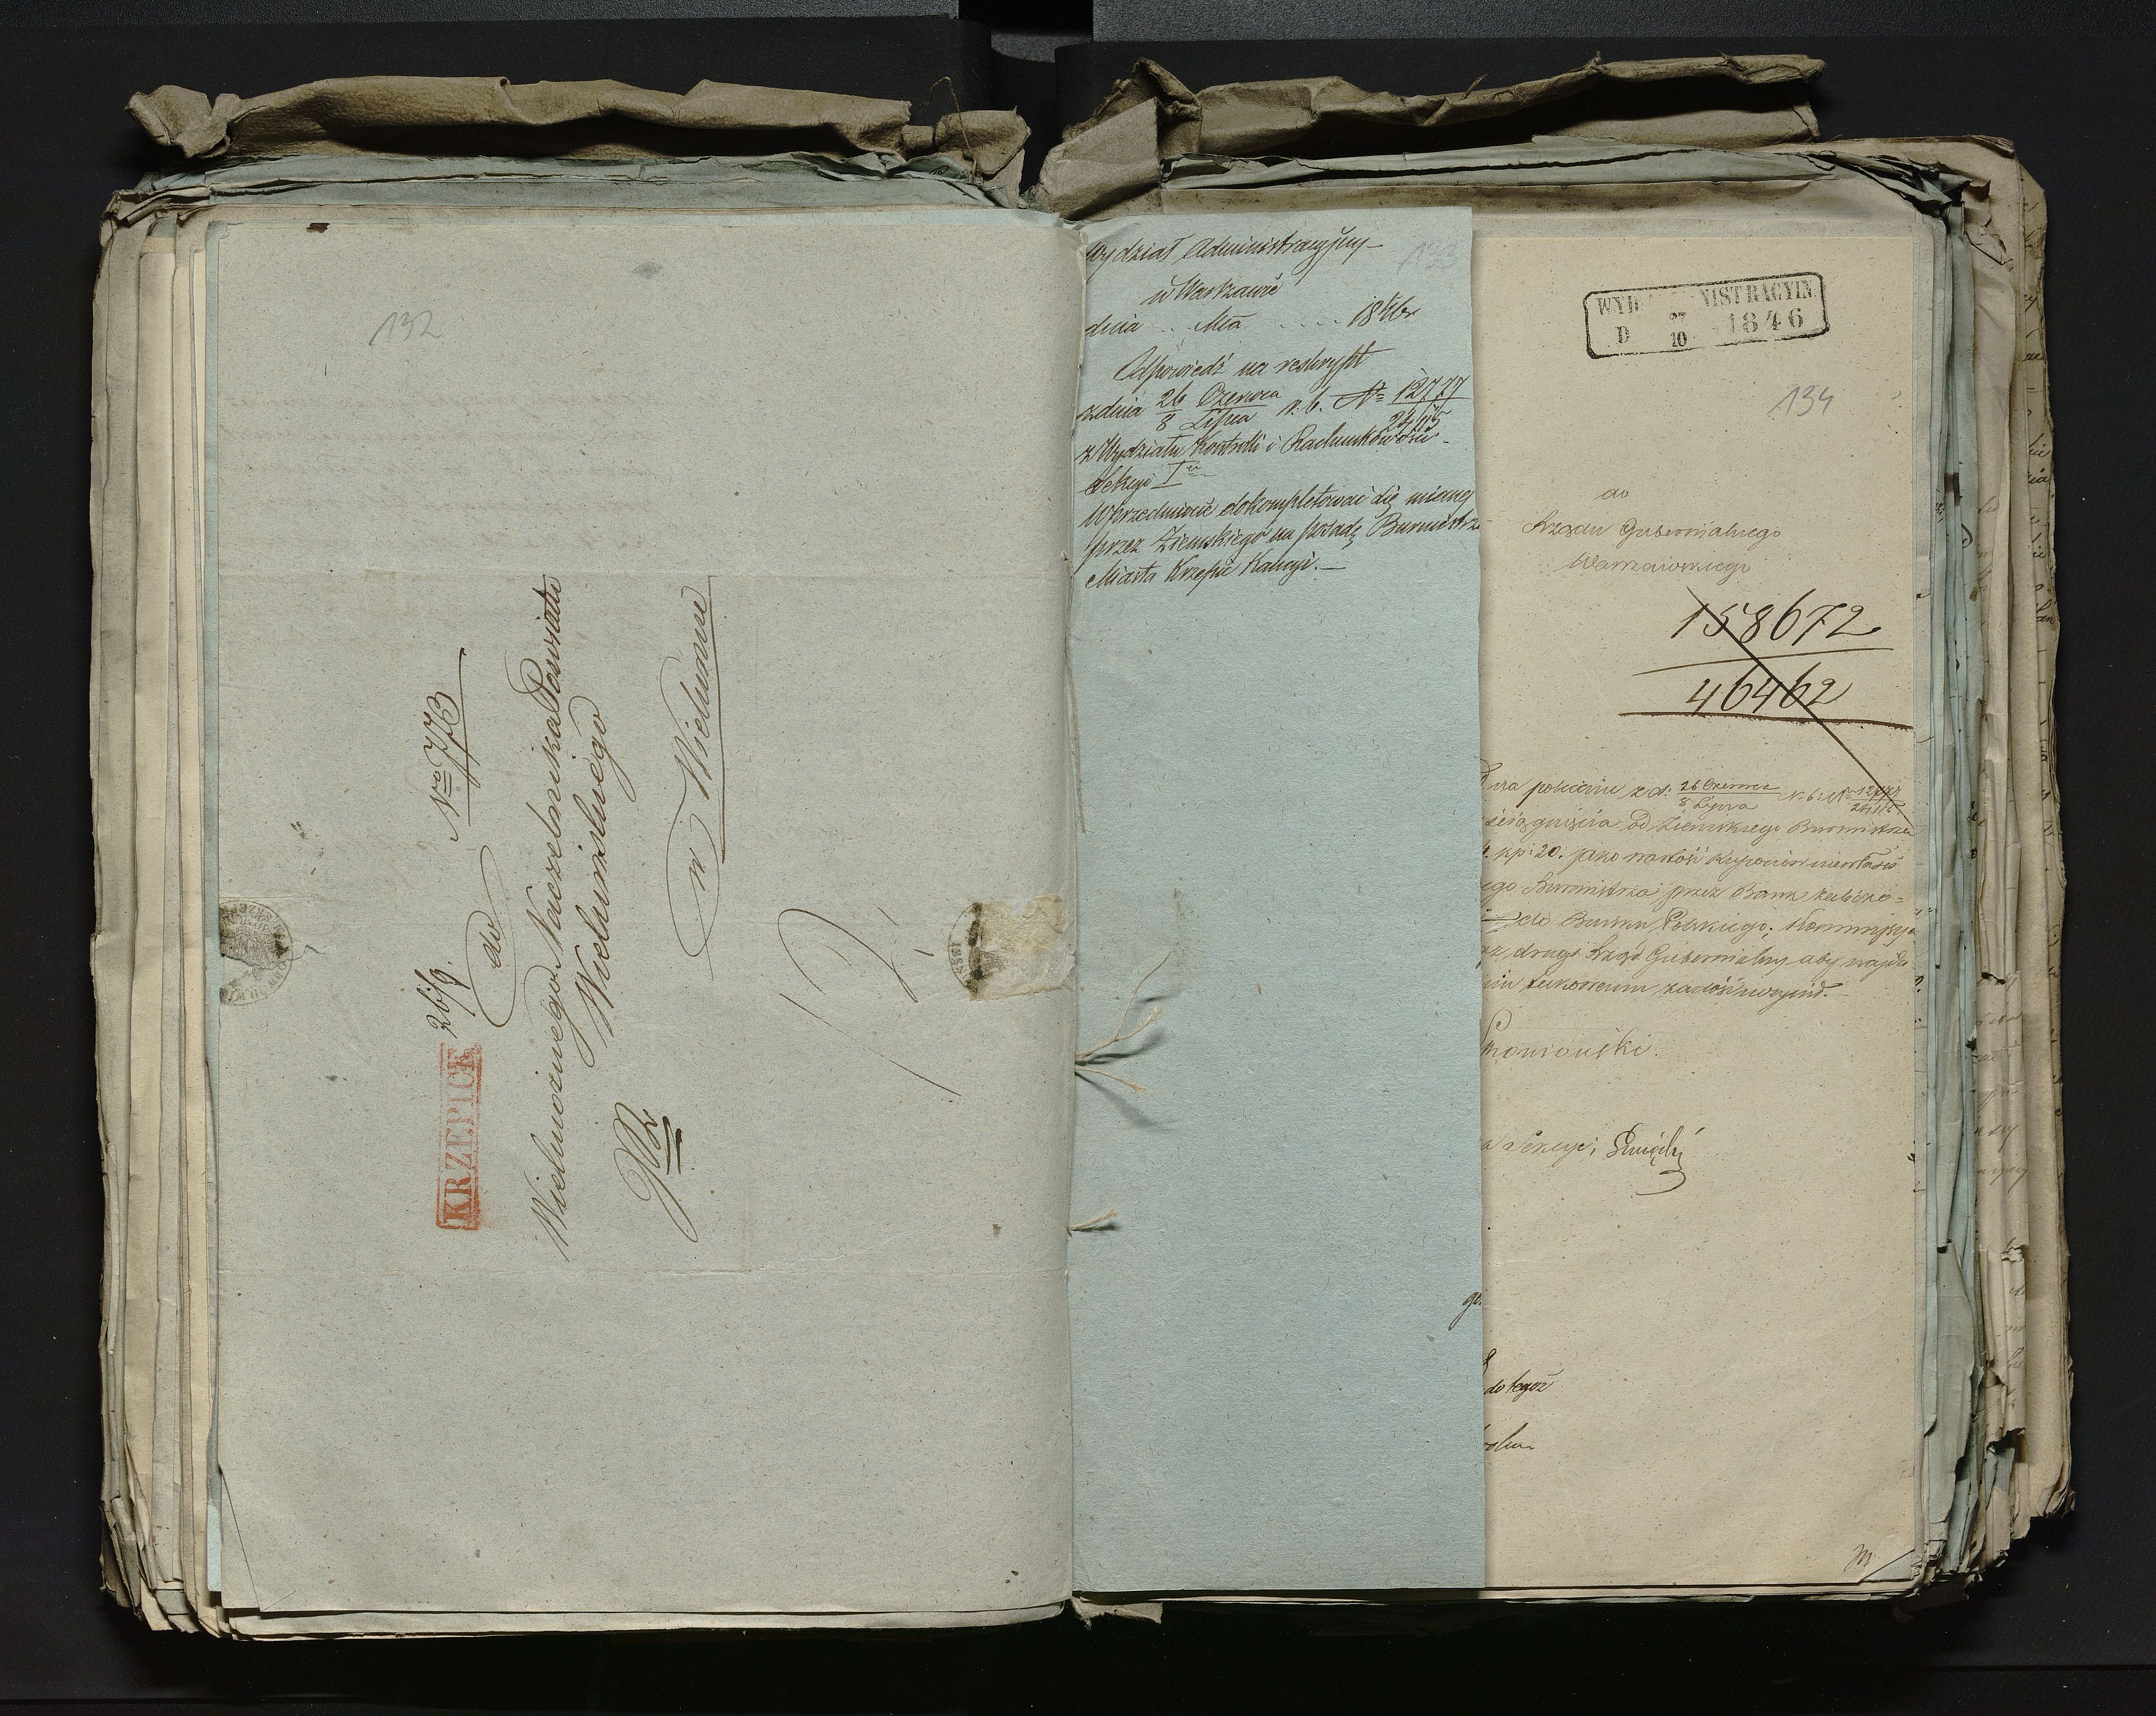 132
KRZEPICE 26/9.
Nro 773
do
Wielmożnego Naczelnika Powiatu
Wieluńskiego
w Wieluniu
Wydział Administracyjny
133
w Warszawie
dnia ... Mca .... 1846 r
Odpowiedź na reskrypt
z dnia 26 Czerwca / 8 Lipca r. b. No 12777 / 24115
z Wydziału Kontrolli i Rachunkowości
Sekcyi I
W przedmiocie dokompletować się mianej
przez Ziemskiego na posadę Burmistrza
Miasta Krzepic Kaucyi.
WYD NISTRACYIN
D 27 / 10 1846
134
do
Rządu Gubernialnego
Warszawskiego
158672
46462
poleceniu z d: 26 Czerwca / 8 Lipca r. b: No 12777
ściągnięcia od Ziemskiego Burmistrza
kp: 20. jako wartość kuponów
ego Burmistrza przez Bank
do Banku Polskiego; Kommissya
az, drugi Rząd Gubernialny aby
zadość uczynił.
Sekcyi
do tegoż